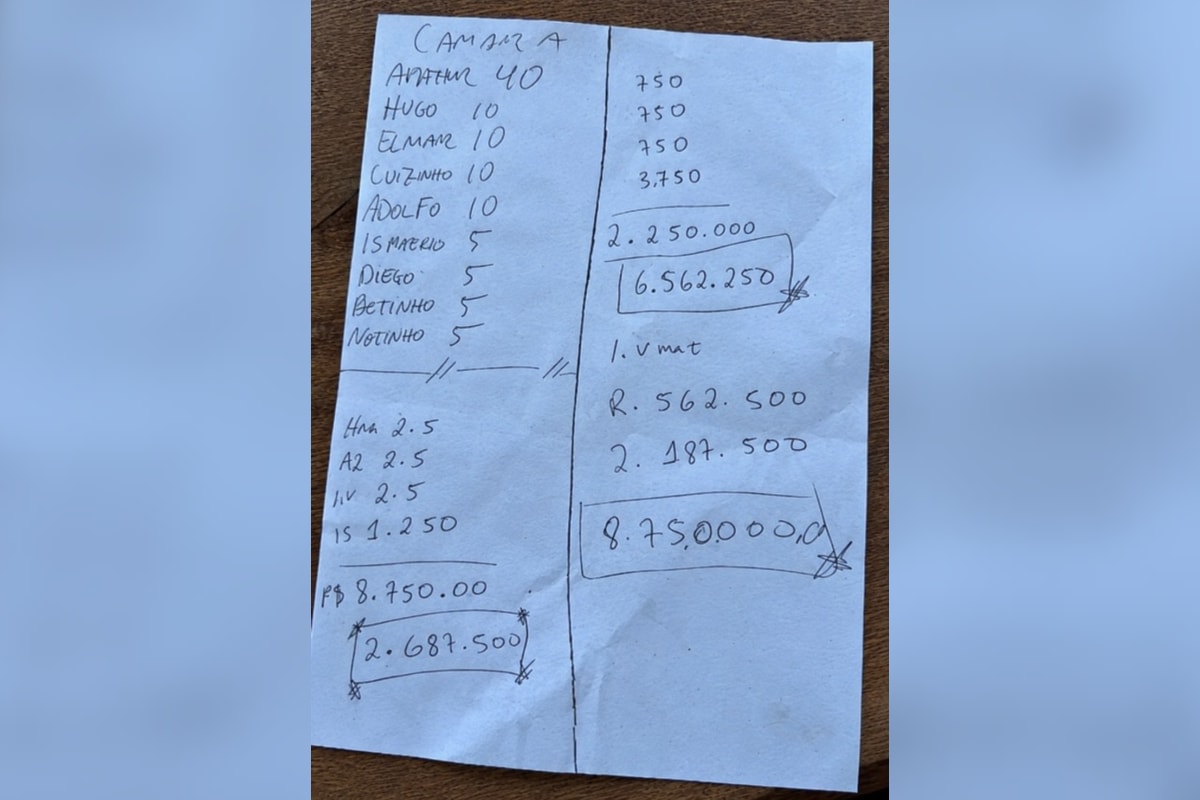 CAMARA
40
HUGO 10
ELMAR 10
CUIZINHO 10
ADOLFO 10
ISMAERIO 5
DIEGO 5
BETINHO 5
NETINHO 5
2.5
A2 2.5
I.V 2.5
IS 1.250
R$ 8.750.00
2.687.500
750
750
750
3.750
2.250.000
6.562.250
I.V mat
R. 562.500
2.187.500
8.750.000,0